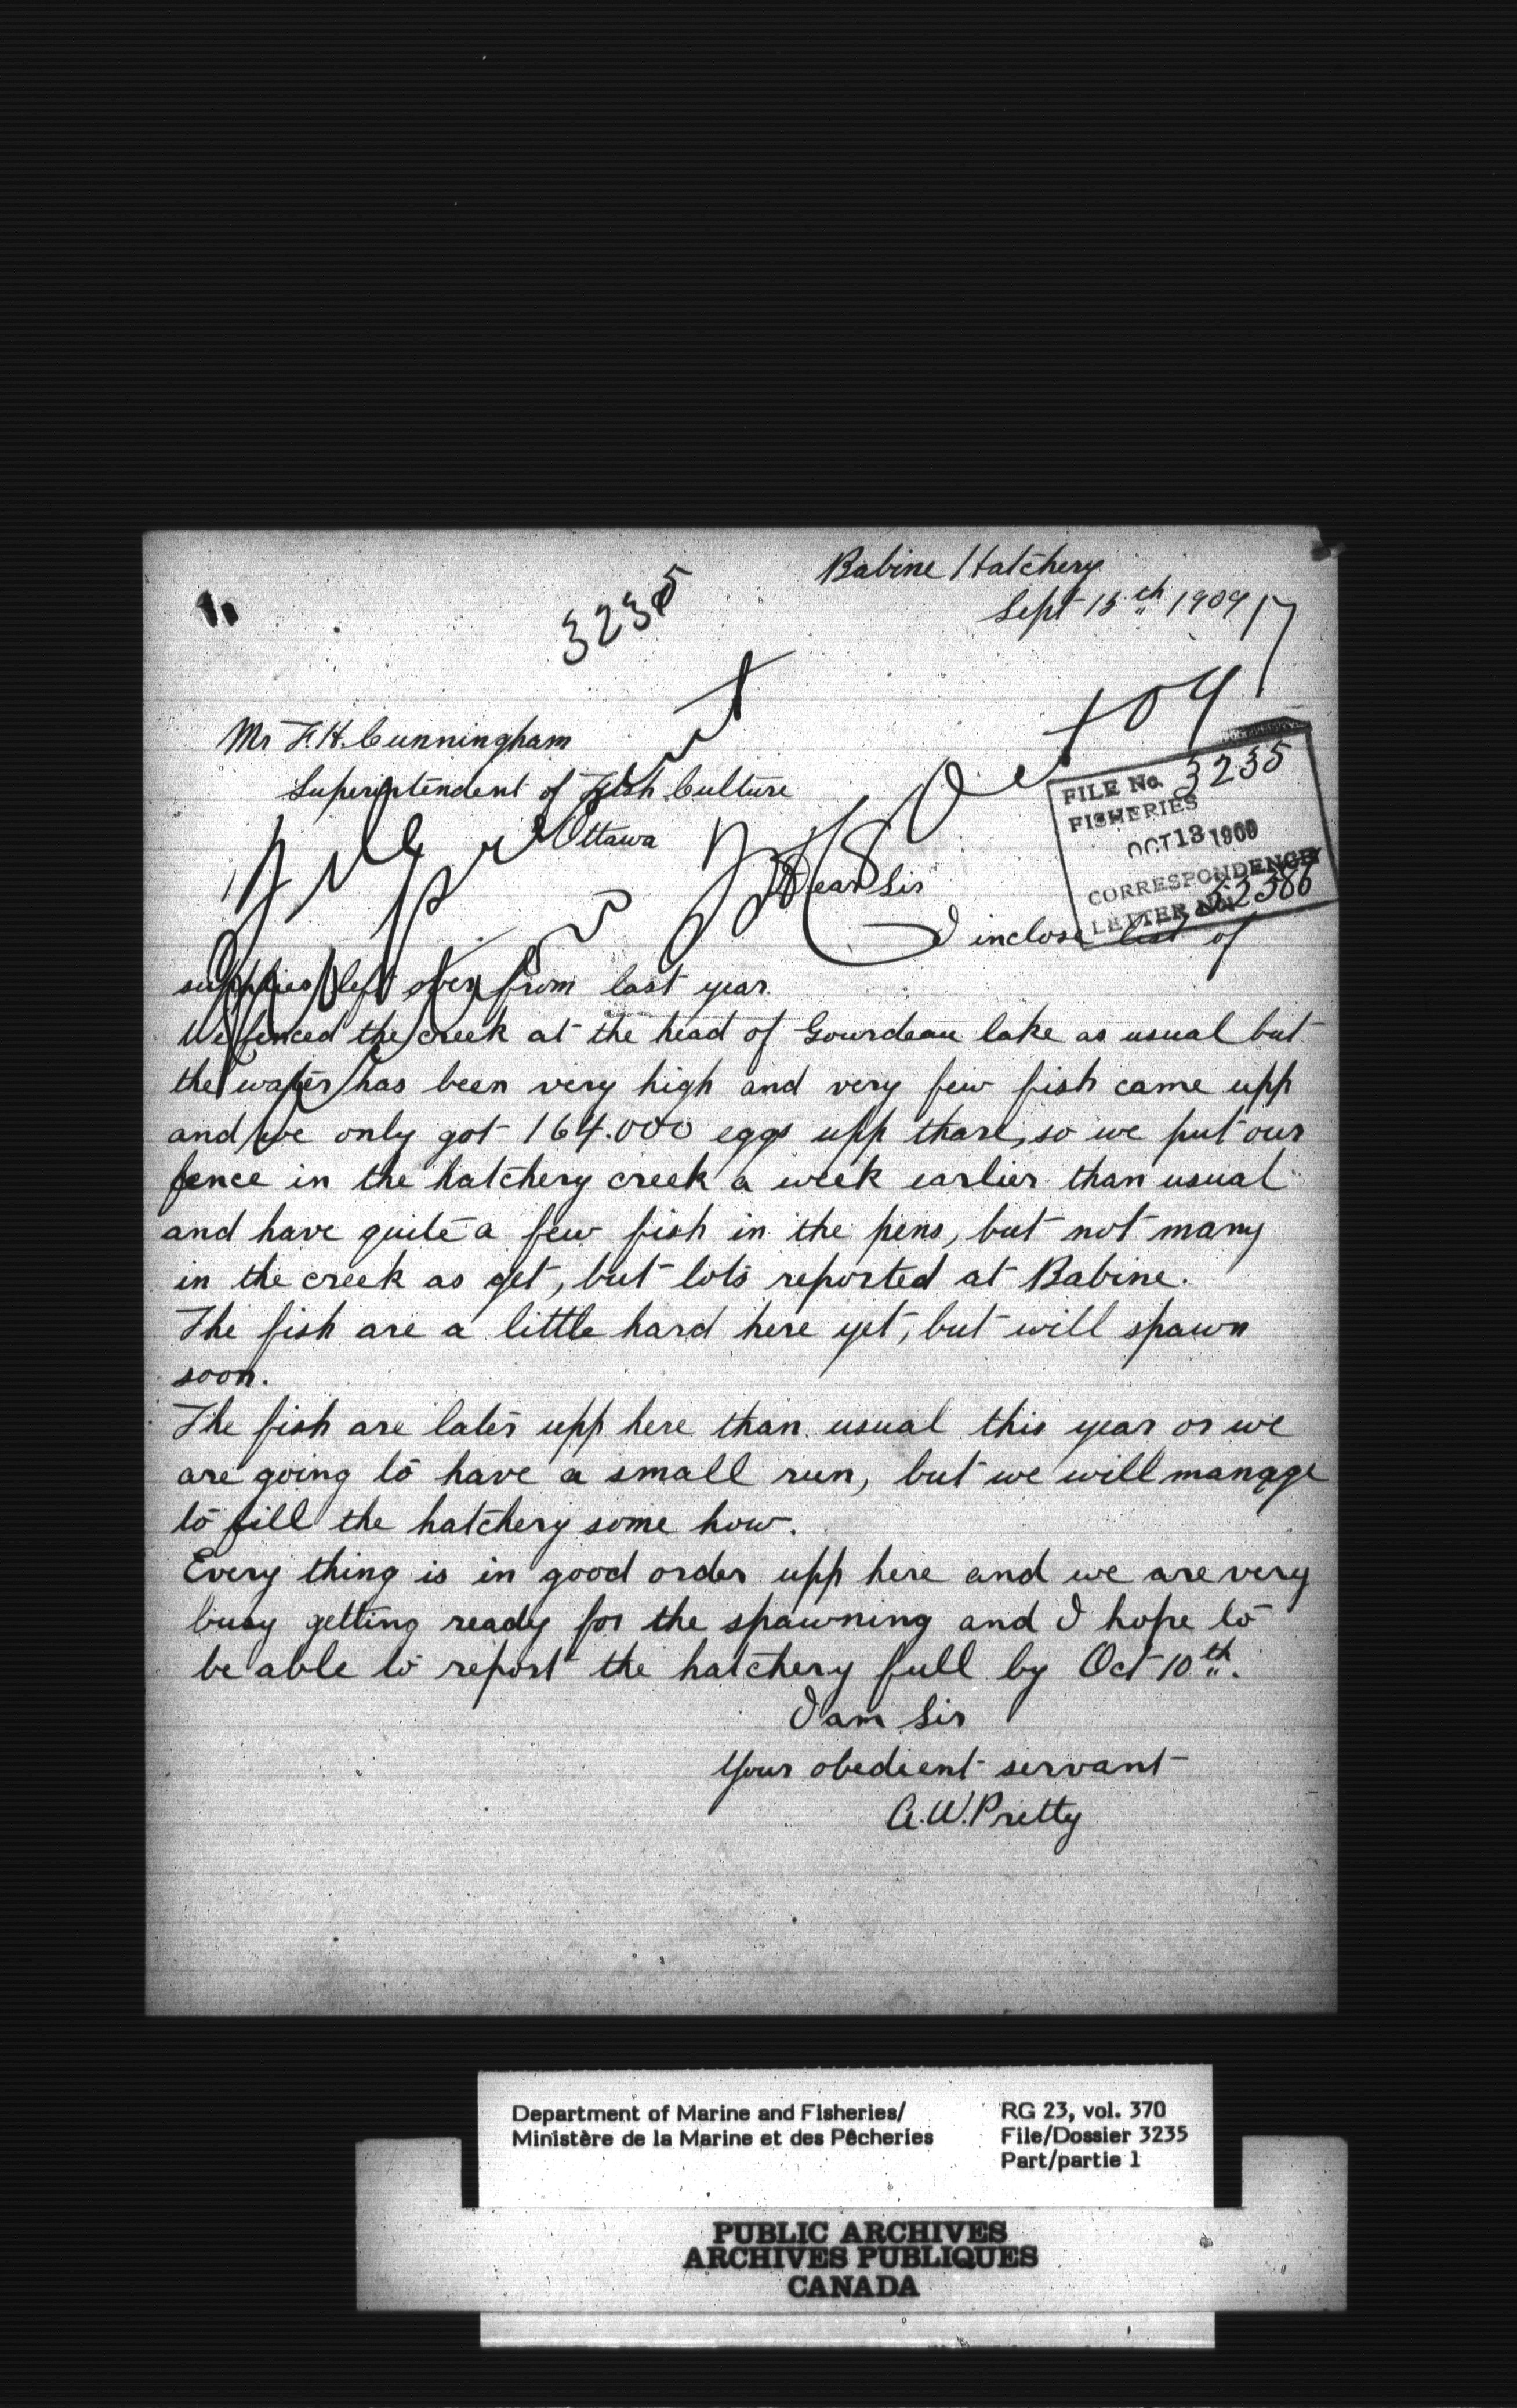 Babine Hatchery
Sept 15th 1909
3235
Mr F. H. Cunningham
Superintendent of Fish Culture
Ottawa
FILE No. 3235
FISHERIES
OCT 13 1909
CORRESPONDENCE
LETTER No.
Dear Sir
I inclose list of
supplies left over from last year.
We fenced the creek at the head of Gourdeau lake as usual but
the water has been very high and very few fish came upp
and we only got 164.000 eggs upp thare, so we put our
fence in the hatchery creek a week earlier than usual
and have quite a few fish in the pens, but not many
in the creek as yet, but lots reported at Babine.
The fish are a little hard here yet, but will spawn
soon.
The fish are later upp here than usual this year or we
are going to have a small run, but we will manage
to fill the hatchery some how.
Every thing is in good order upp here and we are very
busy getting ready for the spawning and I hope to
be able to report the hatchery full by Oct 10th.
I am Sir
Your obedient servant
A. W. Pretty
Department of Marine and Fisheries/
Ministère de la Marine et des Pêcheries
RG 23, vol. 370
File/Dossier 3235
Part/partie 1
PUBLIC ARCHIVES
ARCHIVES PUBLIQUES
CANADA